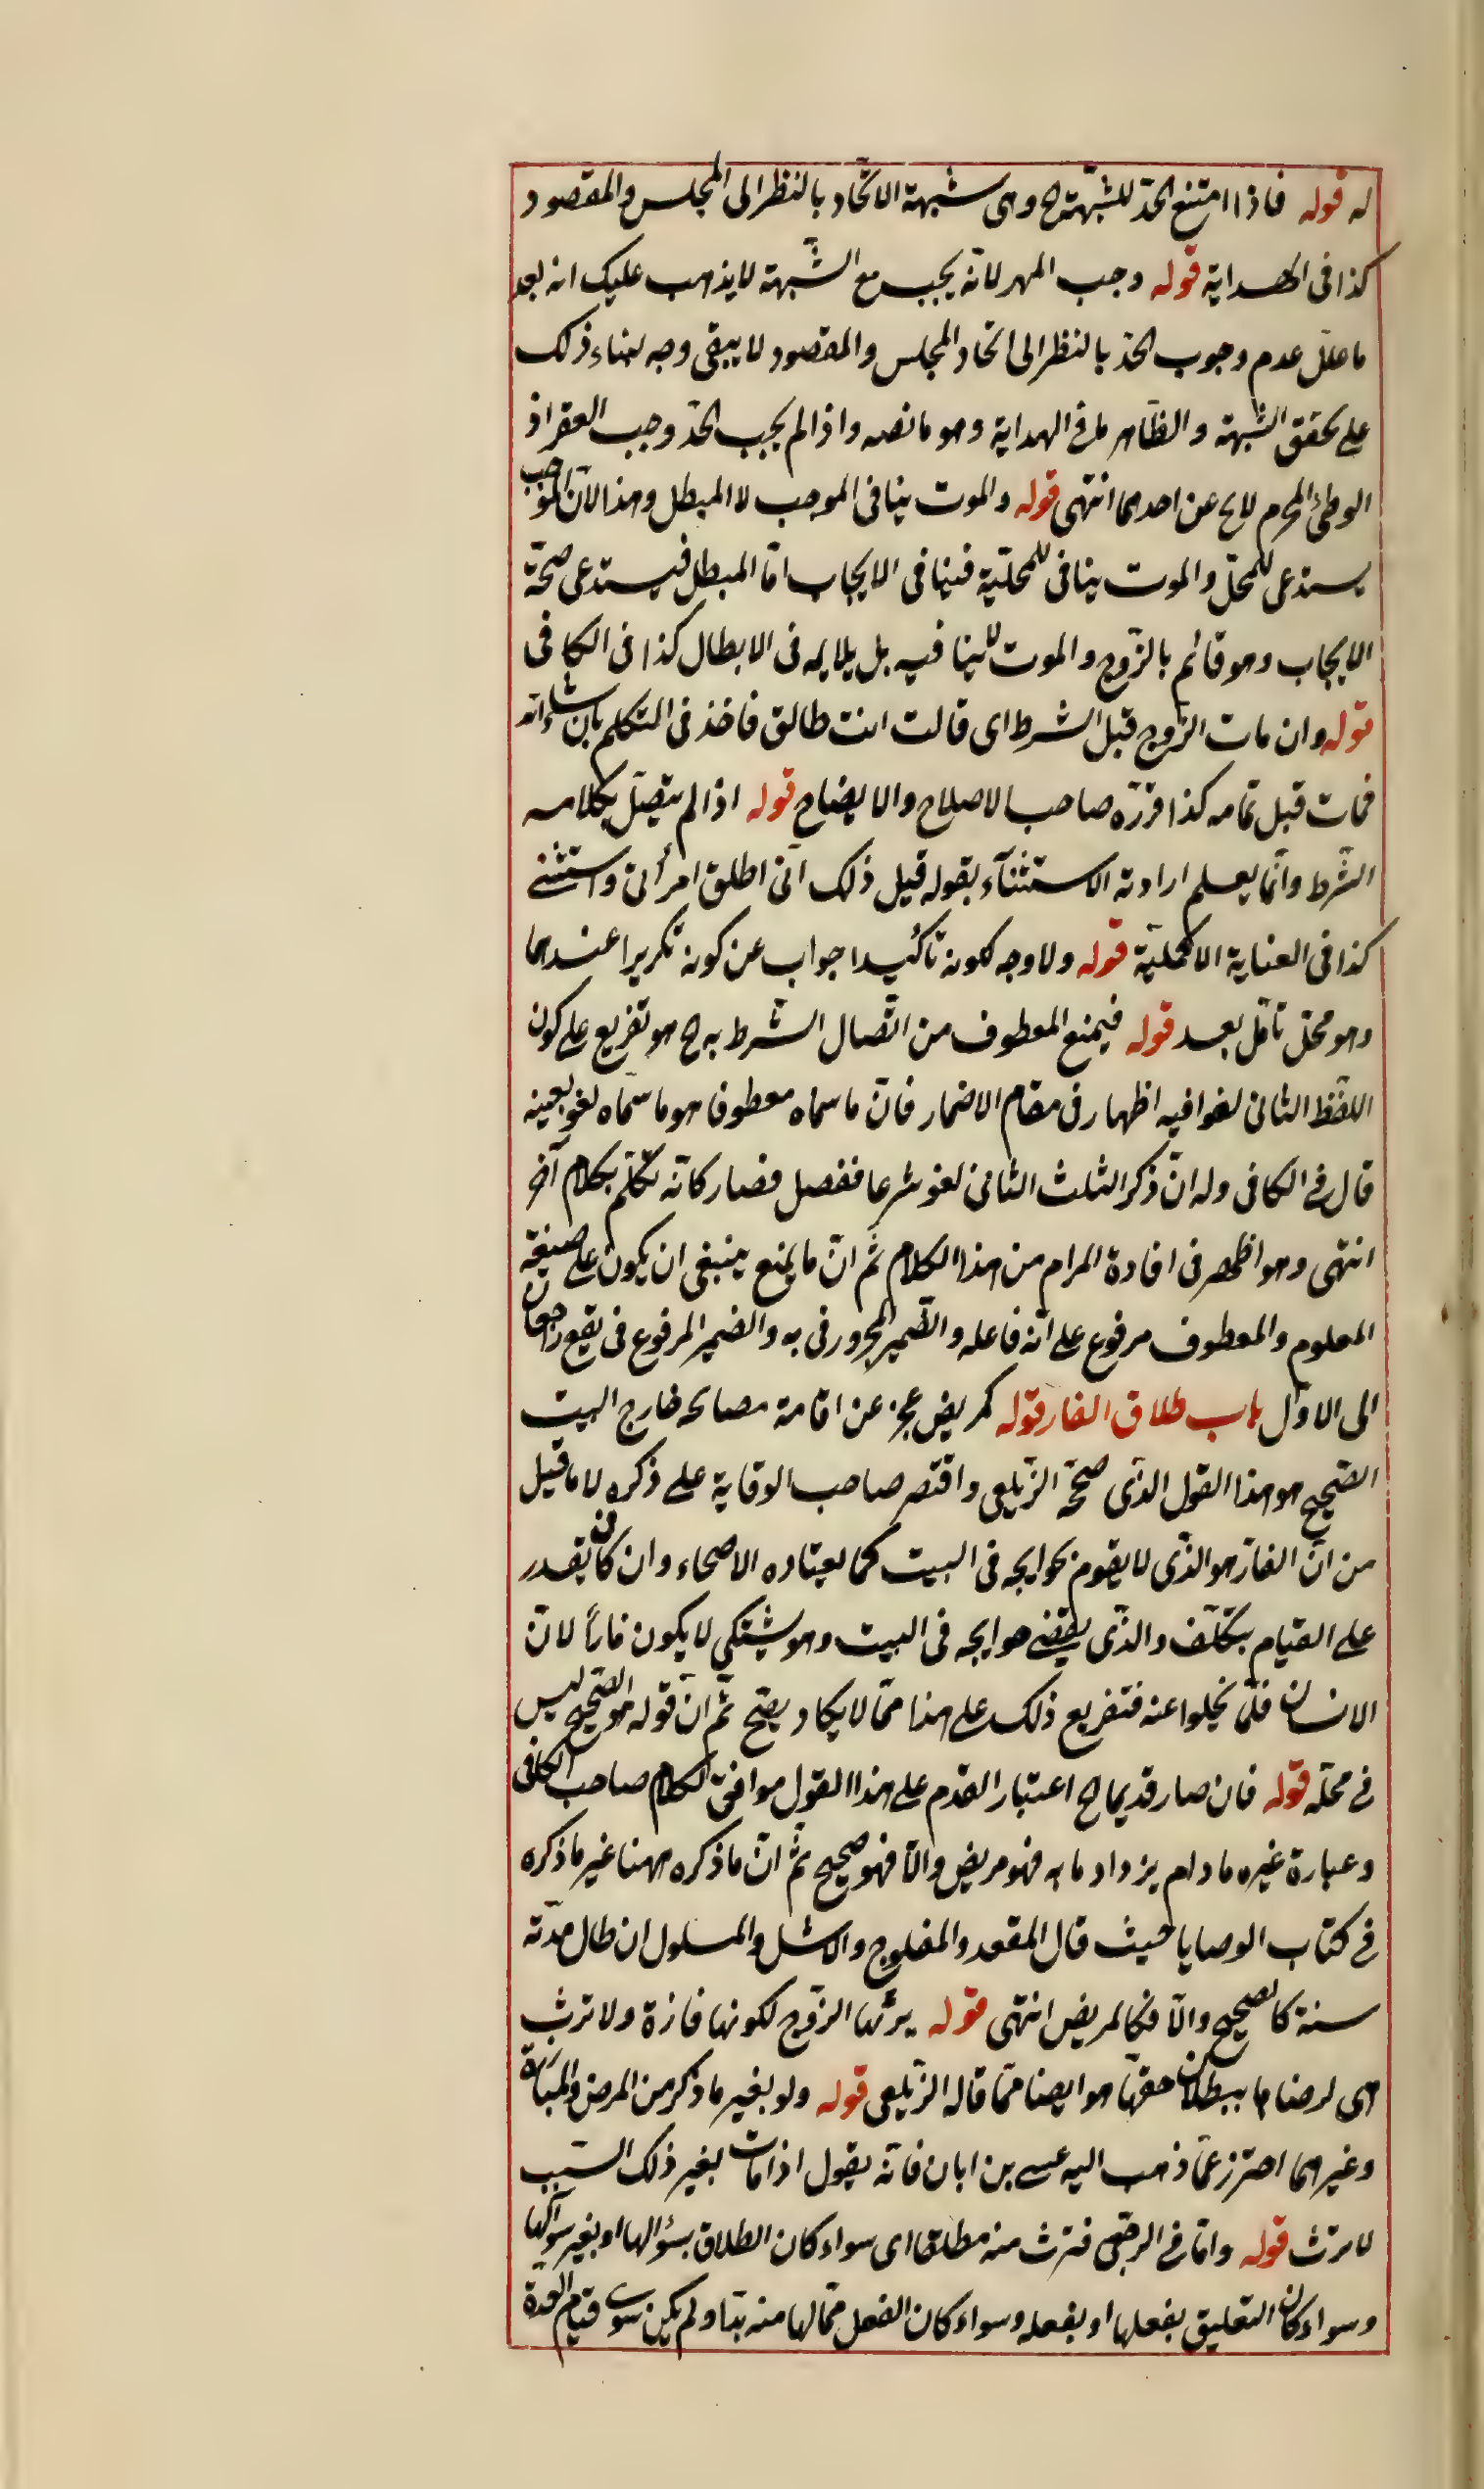 له قوله فاذا امتنع الحدّ للشبهة الخ وهى شبهة الاتّحاد بالنظر الى المجلس والمقصود
كذا فى الهداية قوله وجب المهر لانّه يجب مع الشّبهة لا يذهب عليك انه بعد
ما علّل عدم وجوب الحدّ بالنظر الى اتّحاد المجلس والمقصود لا يبقى وجه لبناء ذلك
على تحقق الشّبهة والظاهر ما فى الهداية وهو ما نصه واذا لم يجب الحدّ وجب العقر اذ
الوطئ المحرم لا يخ عن احدهما انتهى قوله والموت ينافى الموجب لا المبطل وهذا لانّ الموجب
يستدعى المحلّ والموت ينافى المحليّة فينافى الايجاب امّا المبطل فيستدعى صحّة
الايجاب وهو قائم بالزّوج والموت لا ينافيه بل يلايمه فى الابطال كذا فى الكافى
قوله وان مات الزّوج قبل الشرط اى قالت انت طالق فاخذ فى التكلم بان شاء الله
فمات قبل تمامه كذا قرّره صاحب الاصلاح والايضاح قوله اذا لم يتصل بكلامه
الشّرط وانّما يعلم ارادته الاستثنآء بقوله قبل ذلك انّى اطلق امرأتى واستثنى
كذا فى العناية الاكمليّة قوله ولا وجه لكونه تأكيدا جواب عن كونه تكريرا عندهما
وهو محلّ تامّل بعد قوله فيمنع المعطوف من اتّصال الشرط به الخ هو تفريع على كون
اللفظ الثانى لغوا فيه اظهار فى مقام الاضمار فانّ ما سماه معطوفا هو ما سمّاه لغو بعينه
قال فى الكافى وله انّ ذكر الثلث الثانى لغو شرعا ففصل فصار كانّه تكلّم بكلام آخر
انتهى وهو اظهر فى افادة المرام من هذا الكلام ثم انّ ما يمنع ينبغى ان يكون على صيغة
المعلوم والمعطوف مرفوع على انّه فاعله والضّمير المجرور فى به والضمير المرفوع فى يقع راجعان
الى الاوّل باب طلاق الفار قوله كمريض عجز عن اقامة مصالحه خارج البيت
الصّحيح هو هذا القول الذى صحّحه الزّيلعى واقتصر صاحب الوقاية على ذكره لا ما قيل
من انّ الفارّ هو الذّى لا يقوم بحوايجه فى البيت كما يعتاده الاصحاء وان كان يقدر
على القيام بتكلّف والذّى يقضى حوايجه فى البيت وهو يشتكى لا يكون فارّاً لانّ
الانسان قلّما يخلوا عنه فتفريع ذلك على هذا ممّا لا يكاد يصّح ثم انّ قوله هو الصّحيح ليس
فى محلّه قوله فان صار قديما الخ اعتبار القدم على هذا القول موافق لكلام صاحب الكافى
وعبارة غيره ما دام يزداد ما به فهو مريض والّا فهو صحيح ثمّ انّ ما ذكره ههنا غير ما ذكره
فى كتاب الوصايا حيث قال المقعد والمفلوج والاشل والمسلول ان طال مدّته
سنة كالصحيح والّا فكالمريض انتهى قوله يرثها الزّوج لكونها فارّة ولا ترث
هى لرضاها ببطلان حقّها هو ايضا ممّا قاله الزّيلعى قوله ولو بغير ما ذكر من المرض والمبارزة
وغيرهما احترز عمّا ذهب اليه عيسى بن ابان فانّه يقول اذا مات بغير ذلك السّبب
لا ترث قوله وامّا فى الرجعى فترث منه مطلقا اى سواء كان الطلاق بسؤالها او بغير سؤالها
وسواء كان التعليق بفعلها او بفعله وسواء كان الفعل ممّا لها منه بدّ او لم يكن سوى قيام العدّة